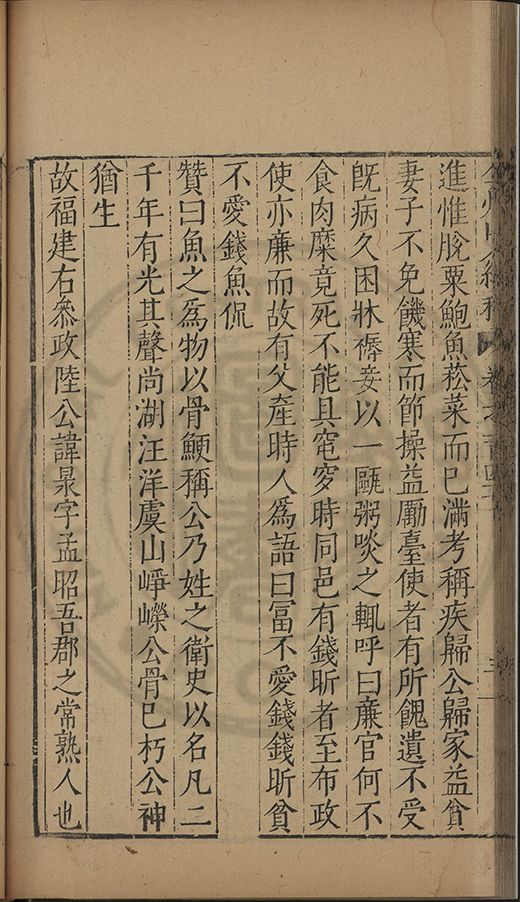 進惟脫粟鮑魚菘菜而已滿考稱疾歸公歸家益貧
妻子不免饑寒而節操益勵臺使者有所餽遺不受
旣病久困牀褥妾以一甌粥啖之輒呼曰廉官何不
食肉糜竟死不能具窀穸時同邑有錢昕者至布政
使亦廉而故有父產時人爲語曰冨不愛錢錢昕貧
不愛錢魚侃
贊曰魚之爲物以骨鯁稱公乃姓之衛史以名凡二
千年有光其聲尚湖汪洋虞山崢嶸公骨已朽公神
猶生
故福建右叅政陸公諱昶字孟昭吾郡之常熟人也